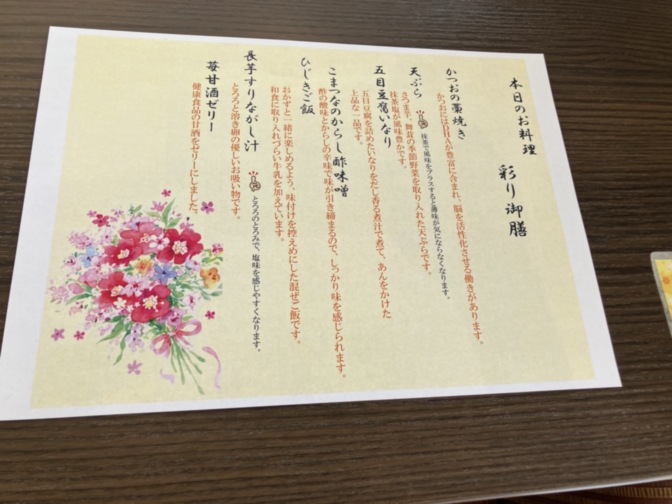 本日のお料理　彩り御膳
かつおの藁焼き
かつおにはDHAが豊富に含まれ、脳を活性化させる働きがあります。
天ぷら
抹茶で風味をプラスすると薄味が気にならなくなります。
さつま芋、舞茸の季節野菜を取り入れた天ぷらです。
抹茶塩が風味豊かです。
五目豆腐いなり
五目豆腐を詰めたいなりをだし香る煮汁で煮て、あんをかけた
上品な一品です。
こまつなのからし酢味噌
酢の酸味とからしの辛味で味が引き締まるので、しっかり味を感じられます。
ひじきご飯
おかずと一緒に楽しめるよう、味付けを控えめにした混ぜご飯です。
和食に取り入れづらい牛乳を加えています。
長芋すりながし汁
とろろのとろみで、塩味を感じやすくなります。
とろろと溶き卵の優しいお吸い物です。
苺甘酒ゼリー
健康食品の甘酒をゼリーにしました。